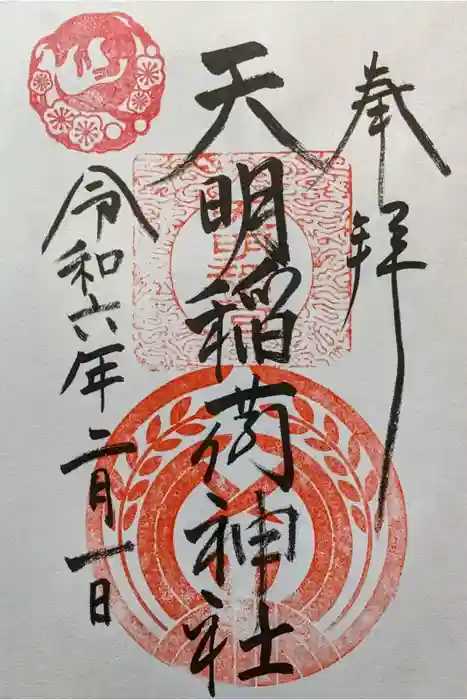 奉拝
天明稲荷神社
令和六年二月一日